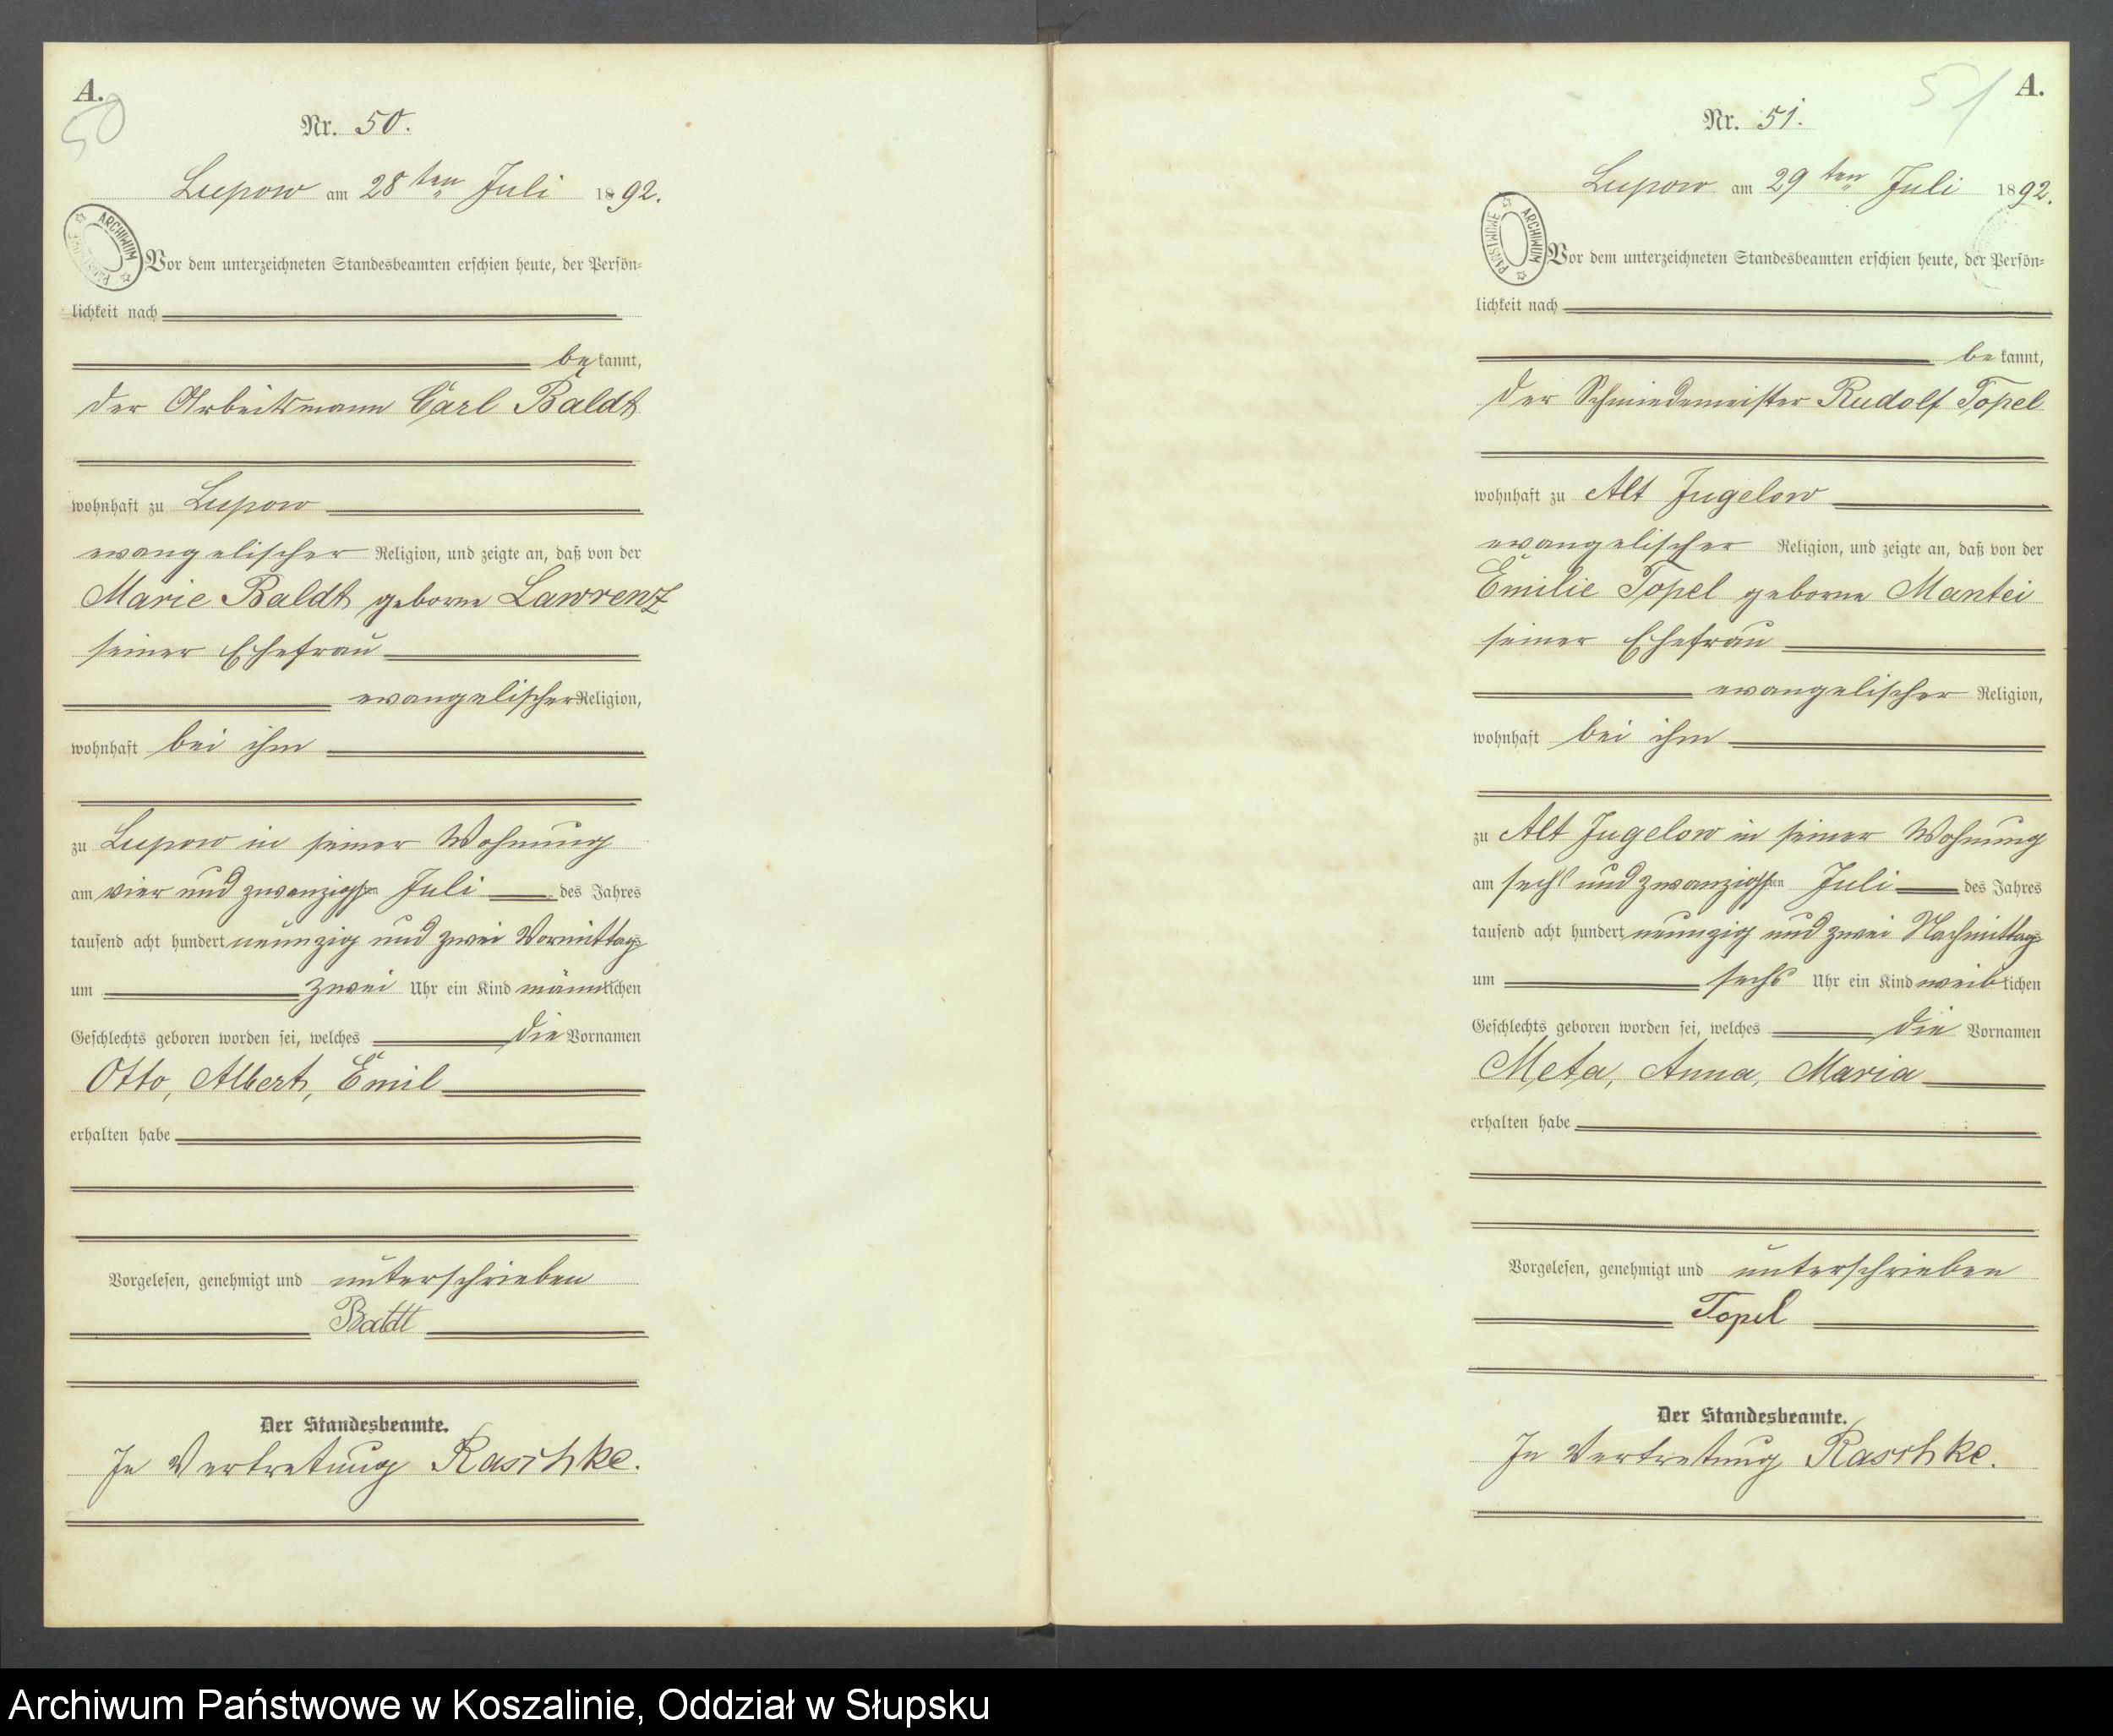 A.
50
Nr. 50.
Lupow am 28ten Juli 1892.
ARCHIWUM PAŃSTWOWE
Vor dem unterzeichneten Standesbeamten erschien heute, der Persön=
lichkeit nach
bekannt,
der Arbeitsmann Carl Baldt
wohnhaft zu Lupow
evangelischer Religion, und zeigte an, daß von der
Marie Baldt geborne Lawrenz
seiner Ehefrau
evangelischer Religion,
wohnhaft bei ihm
zu Lupow in seiner Wohnung
am vier und zwanzigsten Juli des Jahres
tausend acht hundert neunzig und zwei Vormittags
um zwei Uhr ein Kind männlichen
Geschlechts geboren worden sei, welches die Vornamen
Otto, Albert, Emil
erhalten habe
Vorgelesen, genehmigt und unterschrieben
Baldt
Der Standesbeamte.
In Vertretung Raschke.
51
A.
Nr. 51.
Lupow am 29ten Juli 1892.
ARCHIWUM PAŃSTWOWE
Vor dem unterzeichneten Standesbeamten erschien heute, der Persön=
lichkeit nach
bekannt,
der Schmiedemeister Rudolf Topel
wohnhaft zu Alt Jugelow
evangelischer Religion, und zeigte an, daß von der
Emilie Topel geborne Mantei
seiner Ehefrau
evangelischer Religion,
wohnhaft bei ihm
zu Alt Jugelow in seiner Wohnung
am sechs und zwanzigsten Juli des Jahres
tausend acht hundert neunzig und zwei Nachmittags
um sechs Uhr ein Kind weiblichen
Geschlechts geboren worden sei, welches die Vornamen
Meta, Anna, Maria
erhalten habe
Vorgelesen, genehmigt und unterschrieben
Topel
Der Standesbeamte.
In Vertretung Raschke.
Archiwum Państwowe w Koszalinie, Oddział w Słupsku